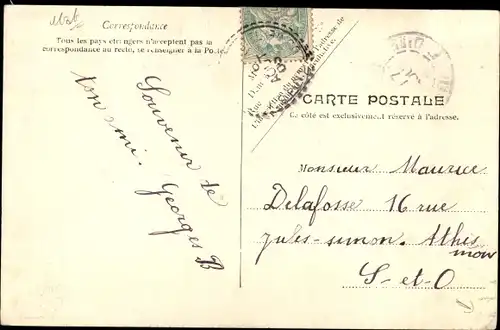 Correspondance
Tous les pays étrangers n'acceptent pas la
correspondance au recto, se renseigner à la Poste.
Souvenir de
ton ami.
Georges B
CARTE POSTALE
Ce côté est exclusivement réservé à l'adresse.
Monsieur Maurice
Delafosse 16 rue
Jules-Simon. Athis
mons
S-et-O